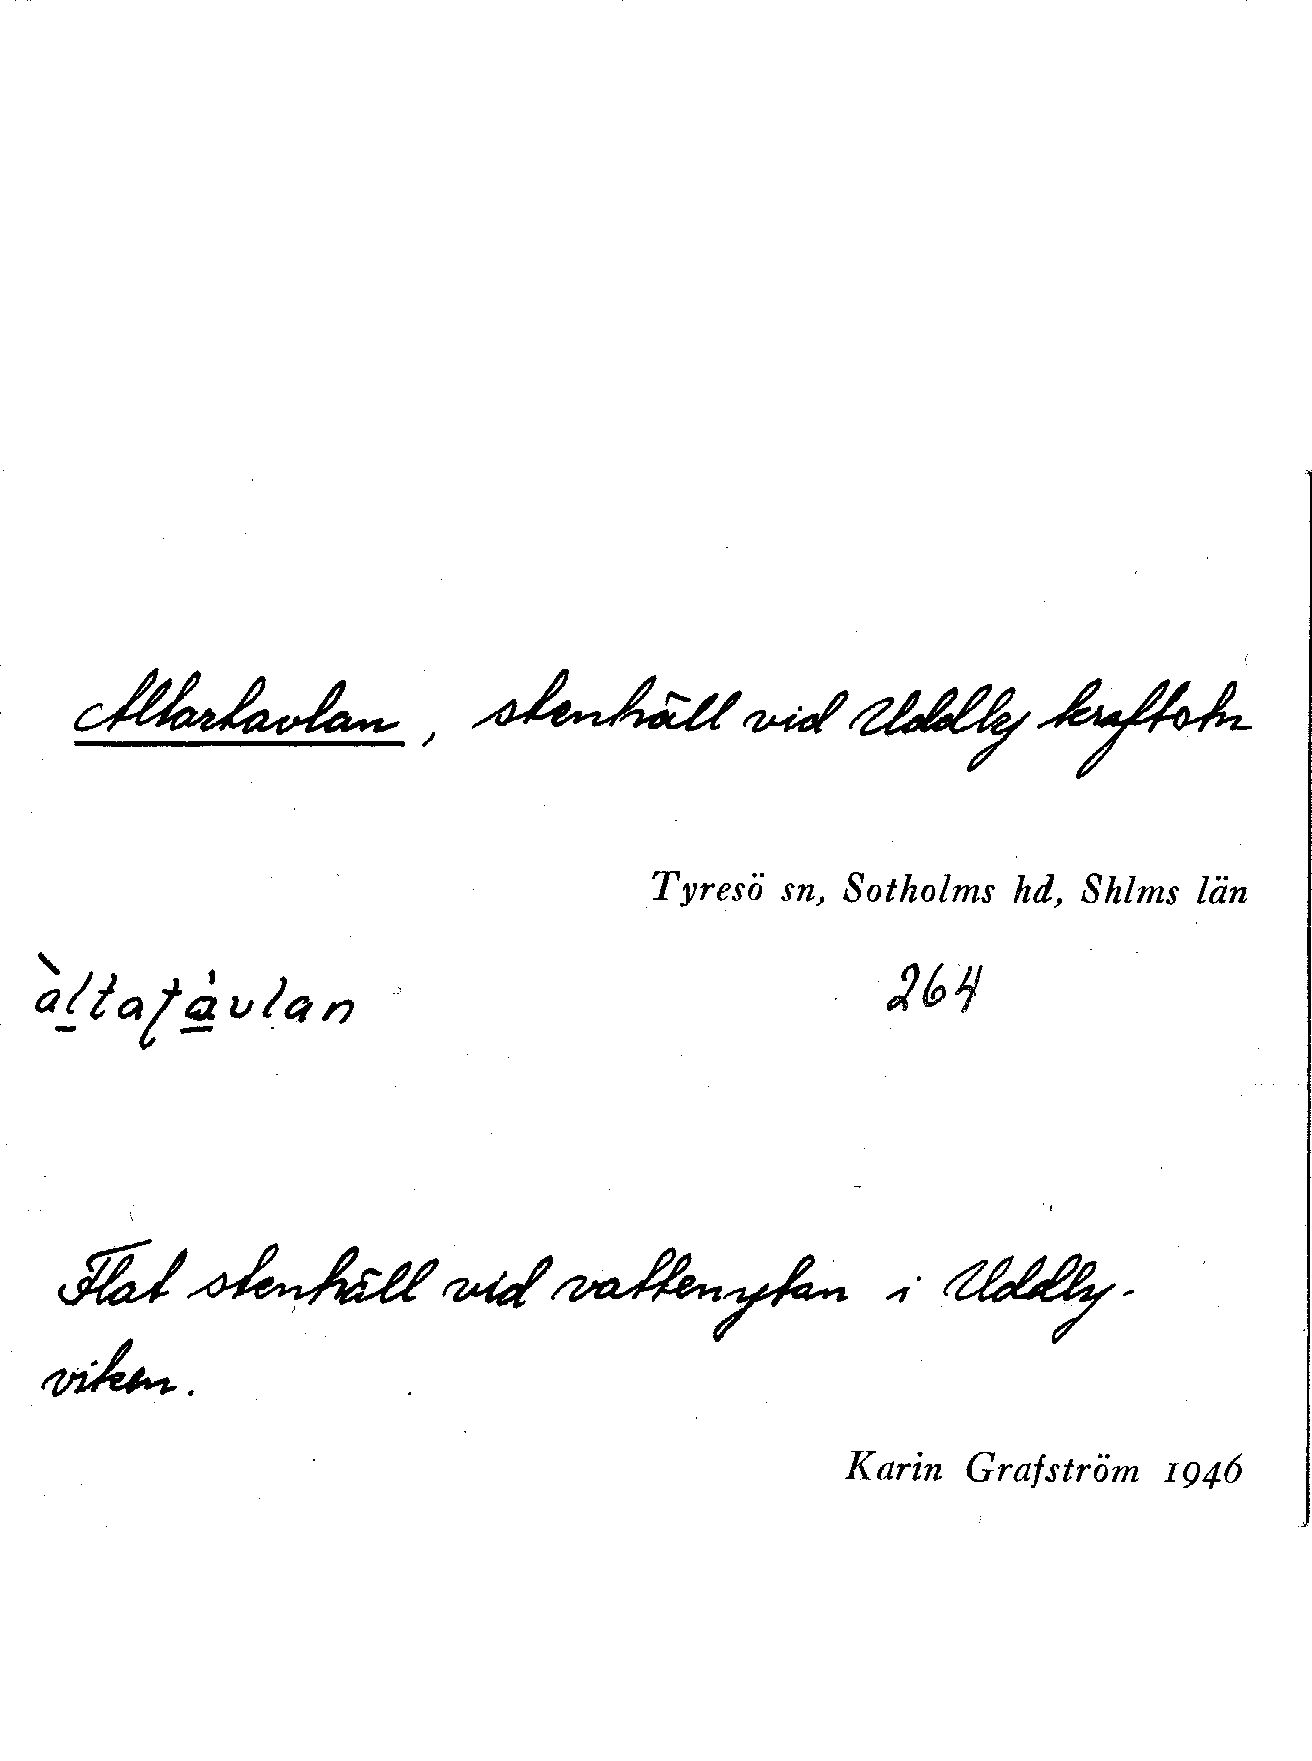 Altartavlan, stenhäll vid Uddby kraftstn
Tyresö sn, Sotholms hd, Shlms län
àl̲taʈa̲vlan 264
Flat stenhäll vid vattenytan i Uddby-
viken.
Karin Grafström 1946